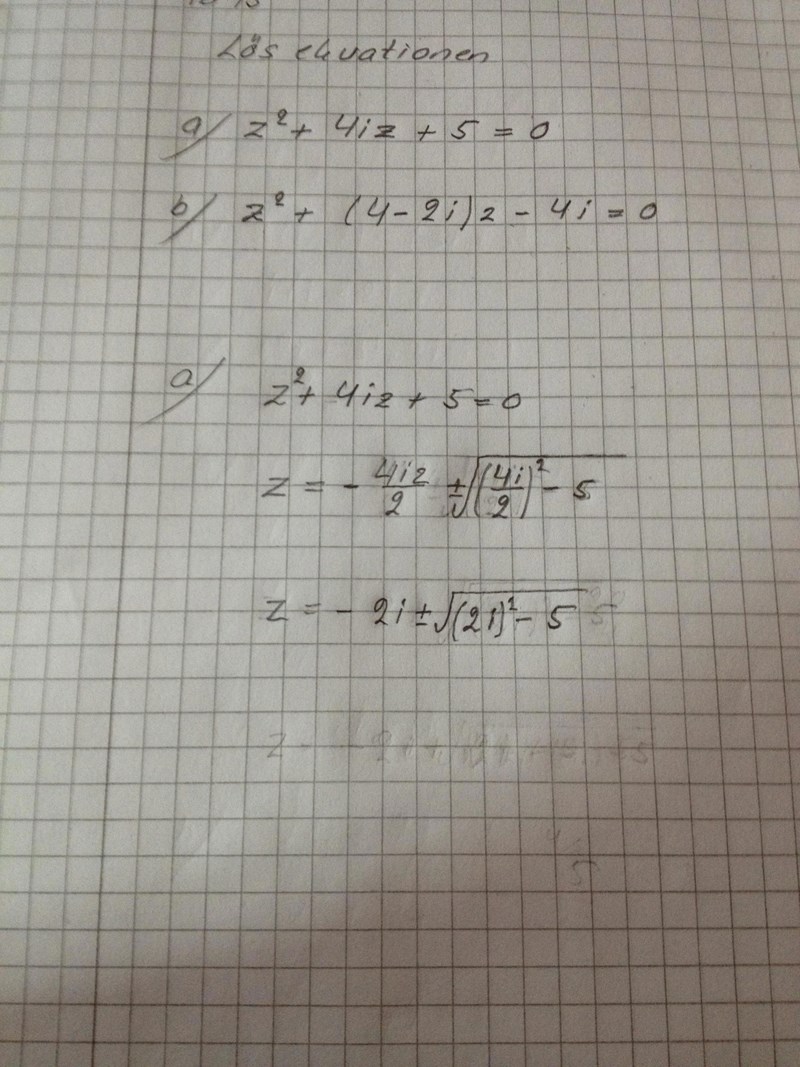 Lös ekvationen
a) z² + 4iz + 5 = 0
b) z² + (4 - 2i)z - 4i = 0
a) z² + 4iz + 5 = 0
z = - 4iz/2 ± √((4i/2)² - 5)
z = - 2i ± √((2i)² - 5)